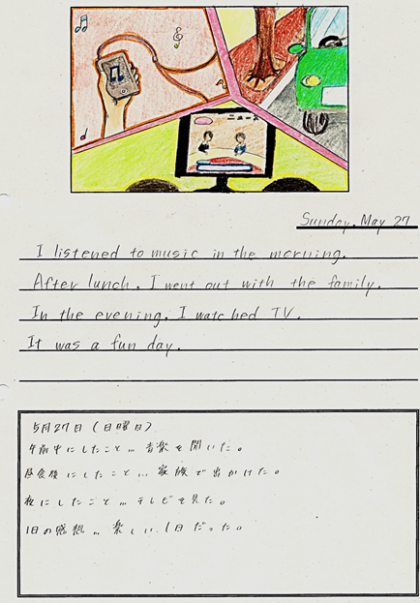 ニュース
Sunday, May 27
I listened to music in the morning.
After lunch, I went out with the family.
In the evening, I watched TV.
It was a fun day.
5月27日(日曜日)
午前中にしたこと… 音楽を聞いた。
昼食後にしたこと… 家族で出かけた。
夜にしたこと… テレビを見た。
1日の感想… 楽しい1日だった。